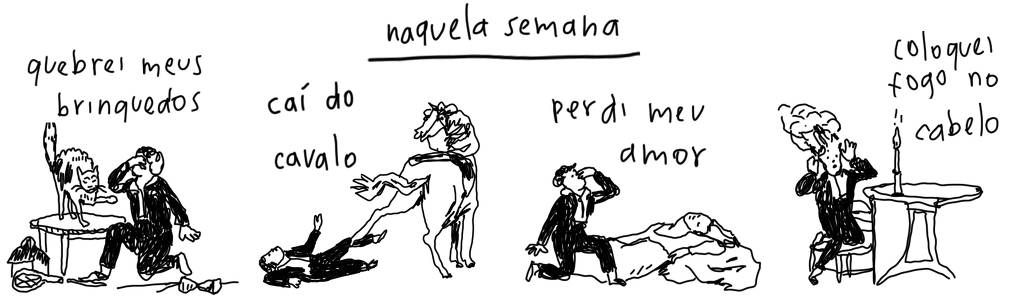 naquela semana
quebrei meus
brinquedos
caí do
cavalo
perdi meu
amor
coloquei
fogo no
cabelo